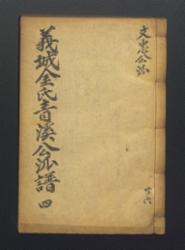 文忠公派
義城金氏青溪公派譜 四
共六